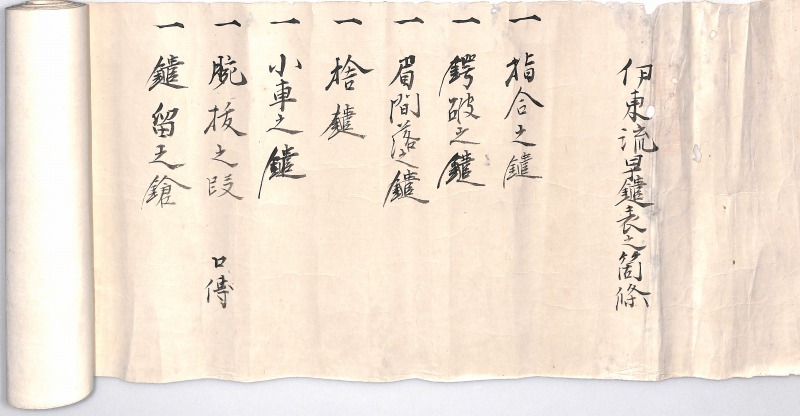 伊東流早鑓表之箇條
一 指合之鑓
一 鍔破之鑓
一 眉間落之鑓
一 捨鑓
一 小車之鑓
一 腕拔之段 口傳
一 鑓留之鎗